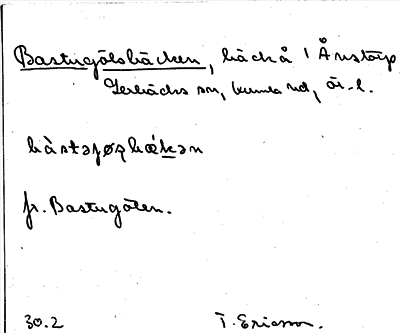 Bastugölsbäcken, bäck å i Ånstorp
Lerbäcks sn, Kumla hd, Ör. l.
bàstəjøɭbækən
fr. Bastugölen.
30.2 T. Ericsson.